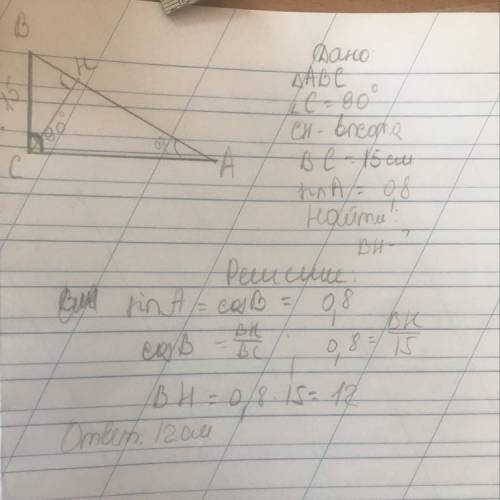 B
H
15
90°
0,8
C
A
Дано:
△ABC
∠C = 90°
CH - высота
BC = 15 см
sin A = 0,8
Найти:
BH - ?
Решение:
sin A = cos B = 0,8
cos B = BH/BC ; 0,8 = BH/15
BH = 0,8 · 15 = 12
Ответ: 12 см